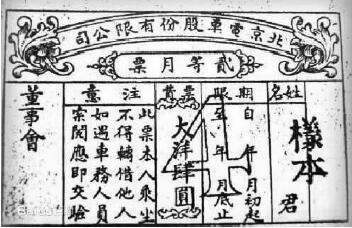 北京電車股份有限公司
貳等月票
姓名
君
樣本
期限
自 年 月初起
至 年 月底止
4
大洋肆圓
注意
此票本人乘坐
不得轉借他人
如遇車務人員
索閱應即交驗
董事會